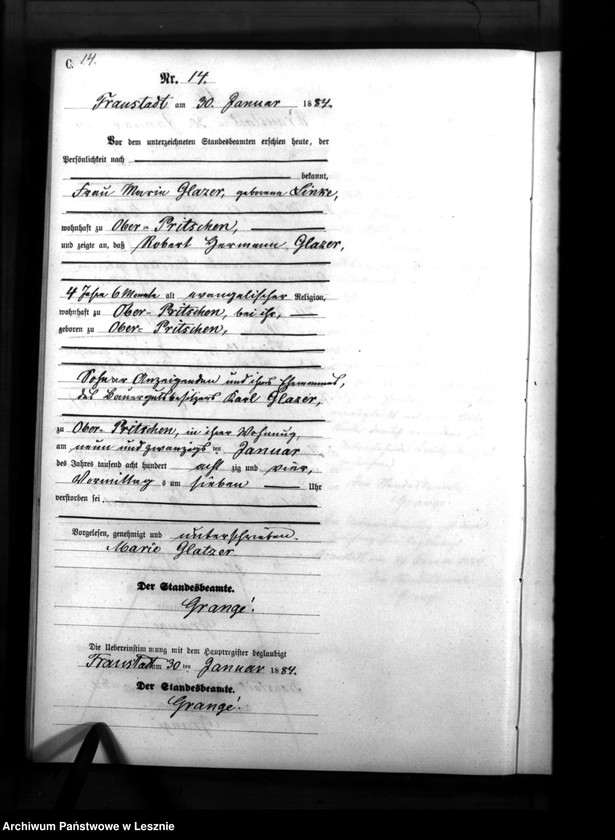 C. 14.
Nr. 14.
Fraustadt am 30. Januar 1884.
Vor dem unterzeichneten Standesbeamten erschien heute, der
Persönlichkeit nach
bekannt,
Frau Marie Glazer, geborene Linke,
wohnhaft zu Ober-Pritschen,
und zeigte an, daß Robert Hermann Glazer,
4 Jahre 6 Monate alt evangelischer Religion,
wohnhaft zu Ober-Pritschen, bei ihr,
geboren zu Ober-Pritschen,
Sohn der Anzeigenden und ihres Ehemannes,
des Bauergutsbesitzers Karl Glazer,
zu Ober-Pritschen, in ihrer Wohnung
am neun und zwanzigsten Januar
des Jahres tausend acht hundert acht zig und vier,
Vormittags um sieben Uhr
verstorben sei.
Vorgelesen, genehmigt und unterschrieben.
Marie Glatzer
Der Standesbeamte.
Grangé.
Die Uebereinstimmung mit dem Hauptregister beglaubigt
Fraustadt am 30 ten Januar 1884.
Der Standesbeamte.
Grangé.
Archiwum Państwowe w Lesznie